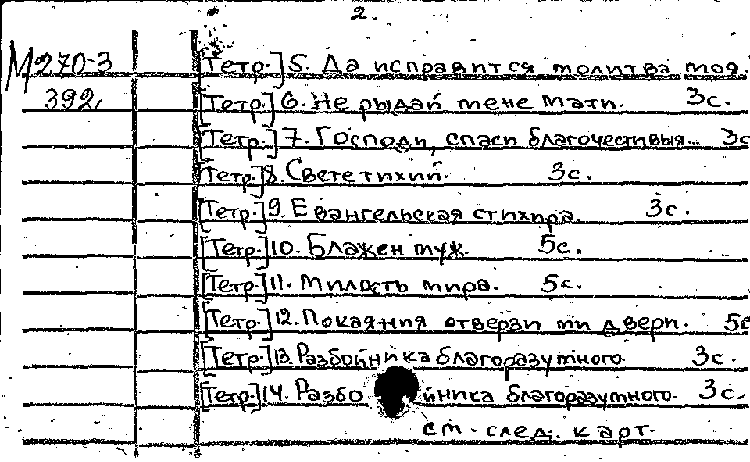 2.
М270-3 [Тетр.] 5. Да исправится молитва моя.
392. [Тетр.] 6. Не рыдай мене мати. 3с.
[Тетр.] 7. Господи, спаси благочестивыя... 3с
[Тетр.] 8. Свете тихий. 3с.
[Тетр.] 9. Евангельская стихира. 3с.
[Тетр.] 10. Блажен муж. 5с.
[Тетр.] 11. Милость мира. 5с.
[Тетр.] 12. Покаяния отверзи ми двери. 5с
[Тетр.] 13. Разбойника благоразумного. 3с.
[Тетр.] 14. Разбойника благоразумного. 3с.
см. след. карт.